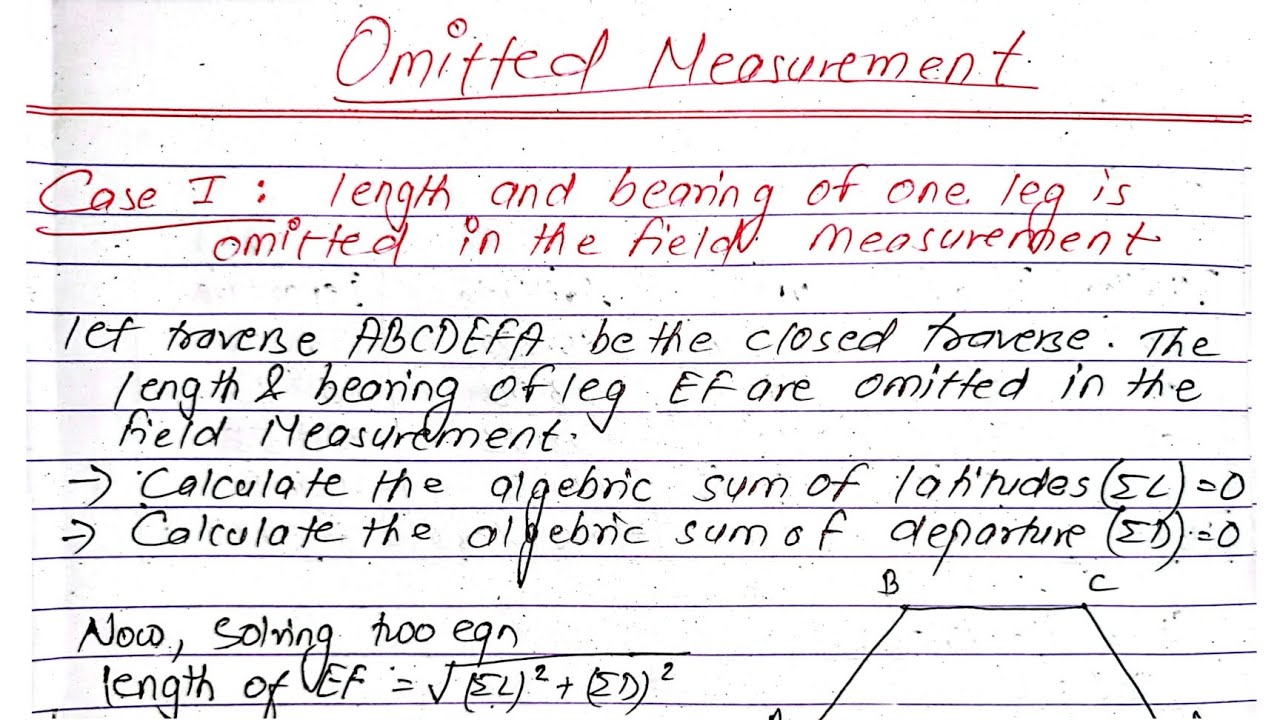 Omitted Measurement
Case I : length and bearing of one leg is
omitted in the field measurement
let traverse ABCDEFA be the closed traverse. The
length & bearing of leg EF are omitted in the
field Measurement.
→ Calculate the algebric sum of latitudes (ΣL) = 0
→ Calculate the algebric sum of departure (ΣD) = 0
B C
Now, Solving two eqn
length of EF = √(ΣL)² + (ΣD)²